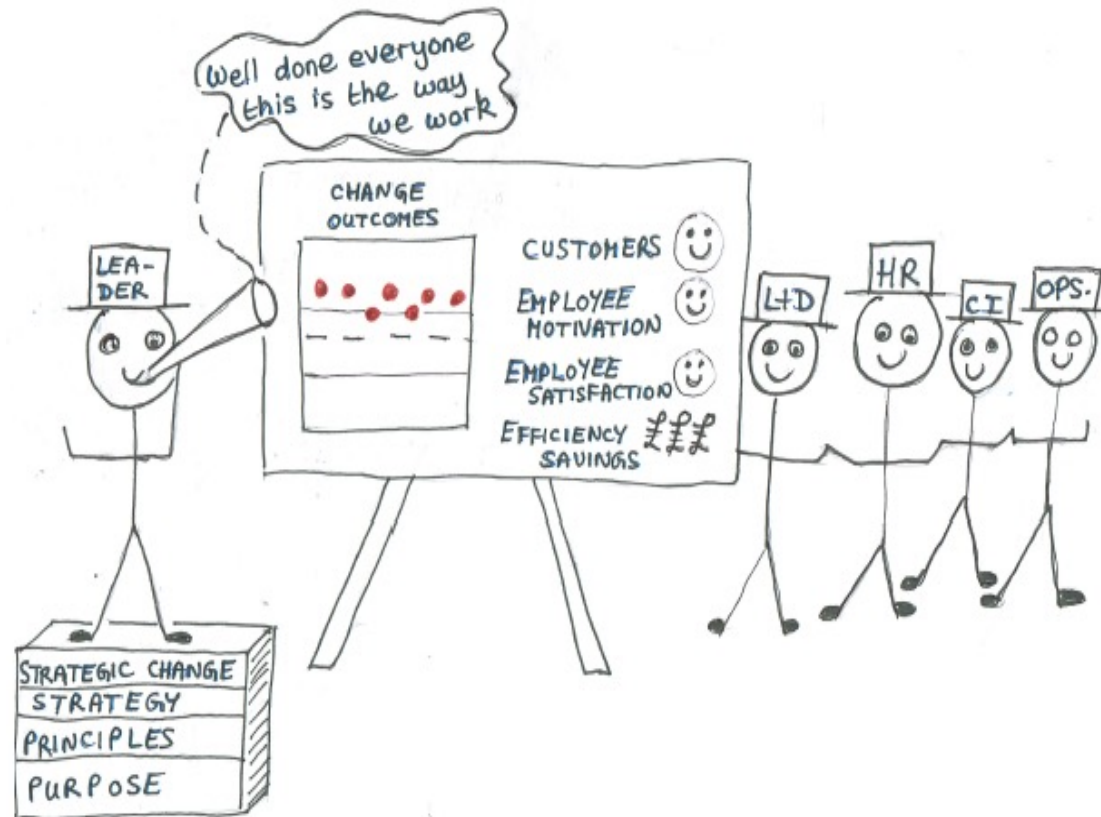 Well done everyone
this is the way
we work
CHANGE
OUTCOMES
CUSTOMERS
EMPLOYEE
MOTIVATION
EMPLOYEE
SATISFACTION
EFFICIENCY
SAVINGS
£££
LEA-
DER
L+D
HR
CI
OPS.
STRATEGIC CHANGE
STRATEGY
PRINCIPLES
PURPOSE